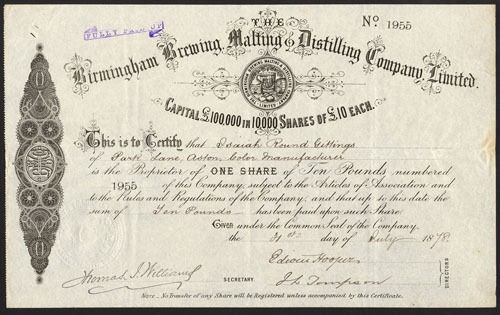 FULLY PAID UP
THE
No 1955
Birmingham Brewing, Malting & Distilling Company, Limited.
CAPITAL £100,000 IN 10,000 SHARES OF £10 EACH.
This is to Certify that Isaiah Round Gittings
of Park Lane, Aston, Color Manufacturer
is the Proprietor of ONE SHARE of Ten Pounds numbered
1955 of this Company, subject to the Articles of Association and
to the Rules and Regulations of the Company, and that up to this date the
sum of Ten Pounds has been paid upon such Share.
Given under the Common Seal of the Company,
the 31st day of July 1878.
Edwin Hooper
Thomas J. Williams
SECRETARY.
DIRECTORS
Note: No Transfer of any Share will be Registered unless accompanied by this Certificate.